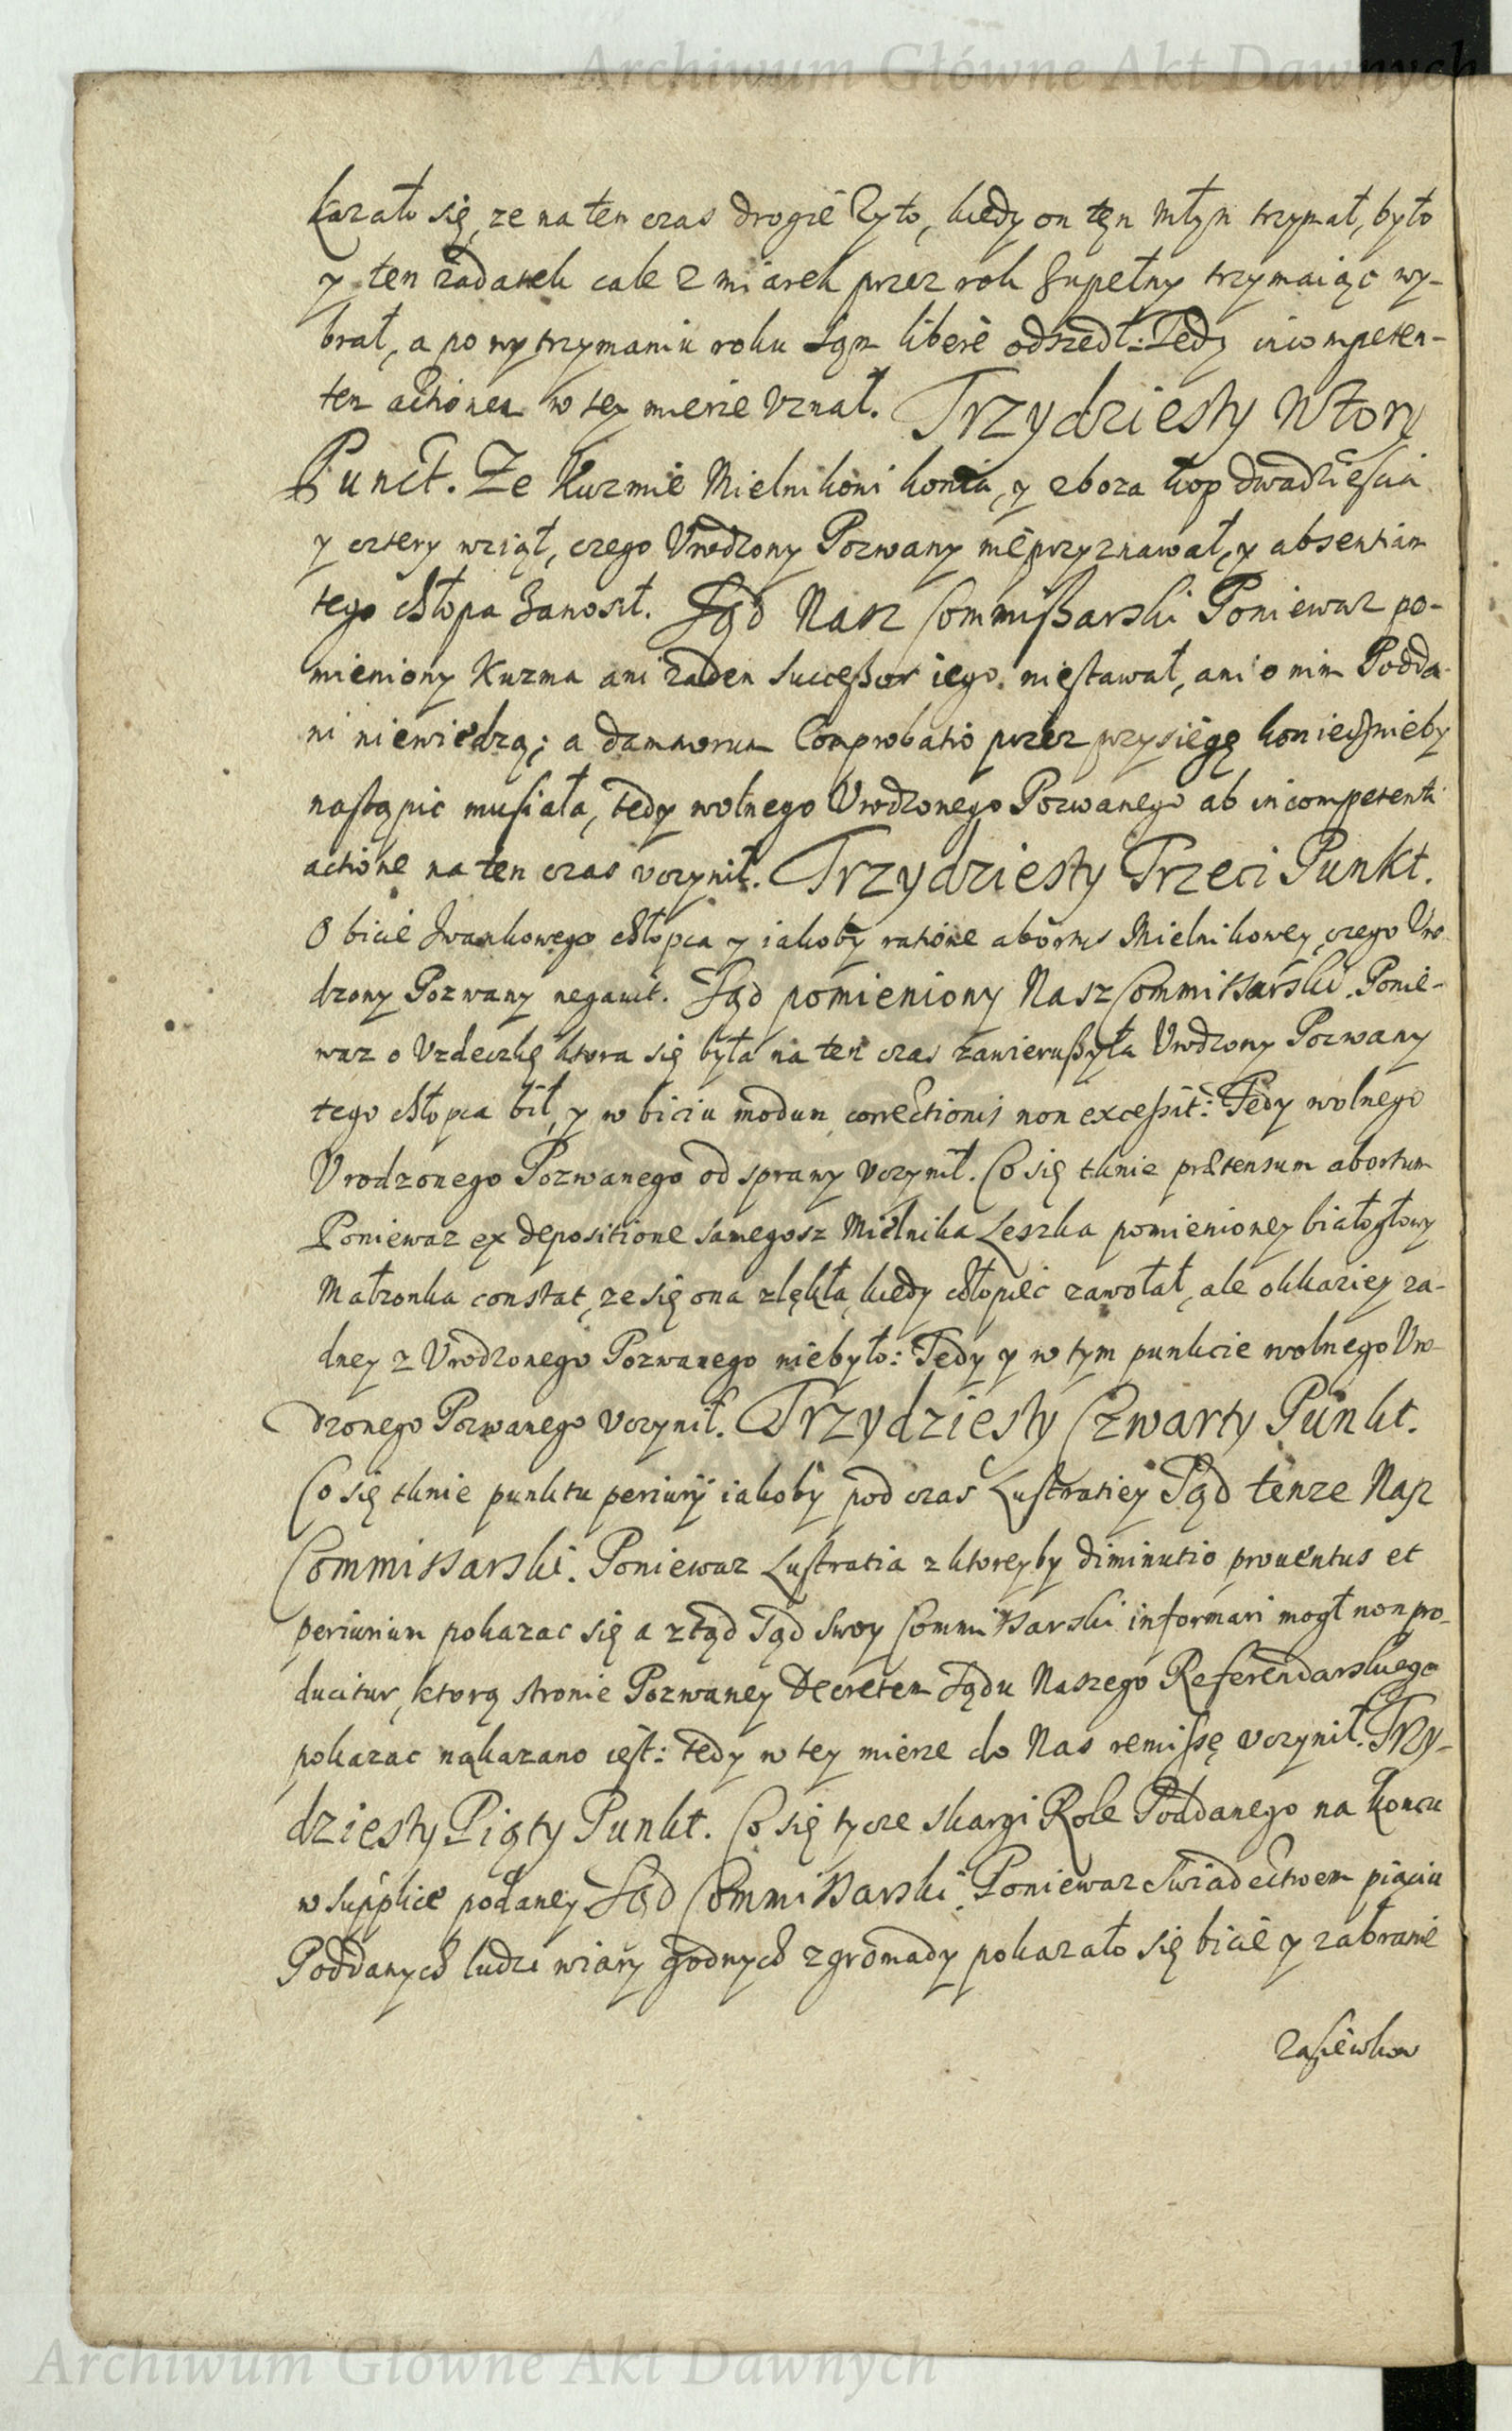 Archiwum Główne Akt Dawnych
kazało się, ze na ten czas drogie Zyto, kiedy on ten młyn trzymał, było
y ten zadatek cale z miarek przez rok zupełny trzymaiąc wy-
brał, a po wytrzymaniu roku sam libere odszedł: Tedy incompeten-
tem actionem w tey mierze Vznał. Trzydziesty Wtory
Punct. Ze Kuzmie Mielnikowi konia, y zboza kop dwadziescia
y cztery wziął, czego Vrodzony Pozwany nieprzyznawał, y absentiam
tego chłopa zanosił. Sąd Nasz Commißarski Poniewaz po-
mieniony Kuzma ani zaden Succeßor iego niestawał, ani o nim Podda-
ni niewiedzą; a damnorum Comprobatio przez przysięgę koniecznieby
nastąpic musiała, tedy wolnego Vrodzonego Pozwanego ab incompetenti
actione na ten czas vczynił. Trzydziesty Trzeci Punkt.
O bicie Iwankowego chłopca y iakoby ratione abortus Mielnikowey, czego Vro-
dzony Pozwany negavit. Sąd pomieniony Nasz Commissarski. Ponie-
waz o Vzdeczkę ktora się była na ten czas zawierußyła Vrodzony Pozwany
tego chłopca bił, y w biciu modum correctionis non exceßit: Tedy wolnego
Vrodzonego Pozwanego od sprawy vczynił. Co się tknie prætensum abortum
Poniewaz ex depositione samegosz Mielnika Leszka pomienioney białogłowy
Małzonka constat, ze się ona zlękła, kiedy chłopiec zawołał, ale okkaziey za-
dney z Vrodzonego Pozwanego niebyło: Tedy y w tym punkcie wolnego Vro-
dzonego Pozwanego vczynił. Trzydziesty Czwarty Punkt.
Co się tknie punktu periurij iakoby pod czas Lustratiey Sąd tenze Nasz
Commissarski. Poniewaz Lustratia z ktoreyby diminutio prouentus et
periurium pokazac się a ztąd Sąd Swoy Commissarski informari mogł non pro-
ducitur, ktorą stronie Pozwaney Decretem Sądu Naszego Referendarskiego
pokazac nakazano iest: tedy w tey mierze do Nas remissę vczynił. Trzy-
dziesty Piąty Punkt. Co się tycze skargi Role Poddanego na koncu
w supplice podaney Sąd Commissarski. Poniewaz Swiadectwem piąciu
Poddanych ludzi wiary godnych z gromady pokazało się bicie y zabranie
Zasiewkow
Archiwum Główne Akt Dawnych